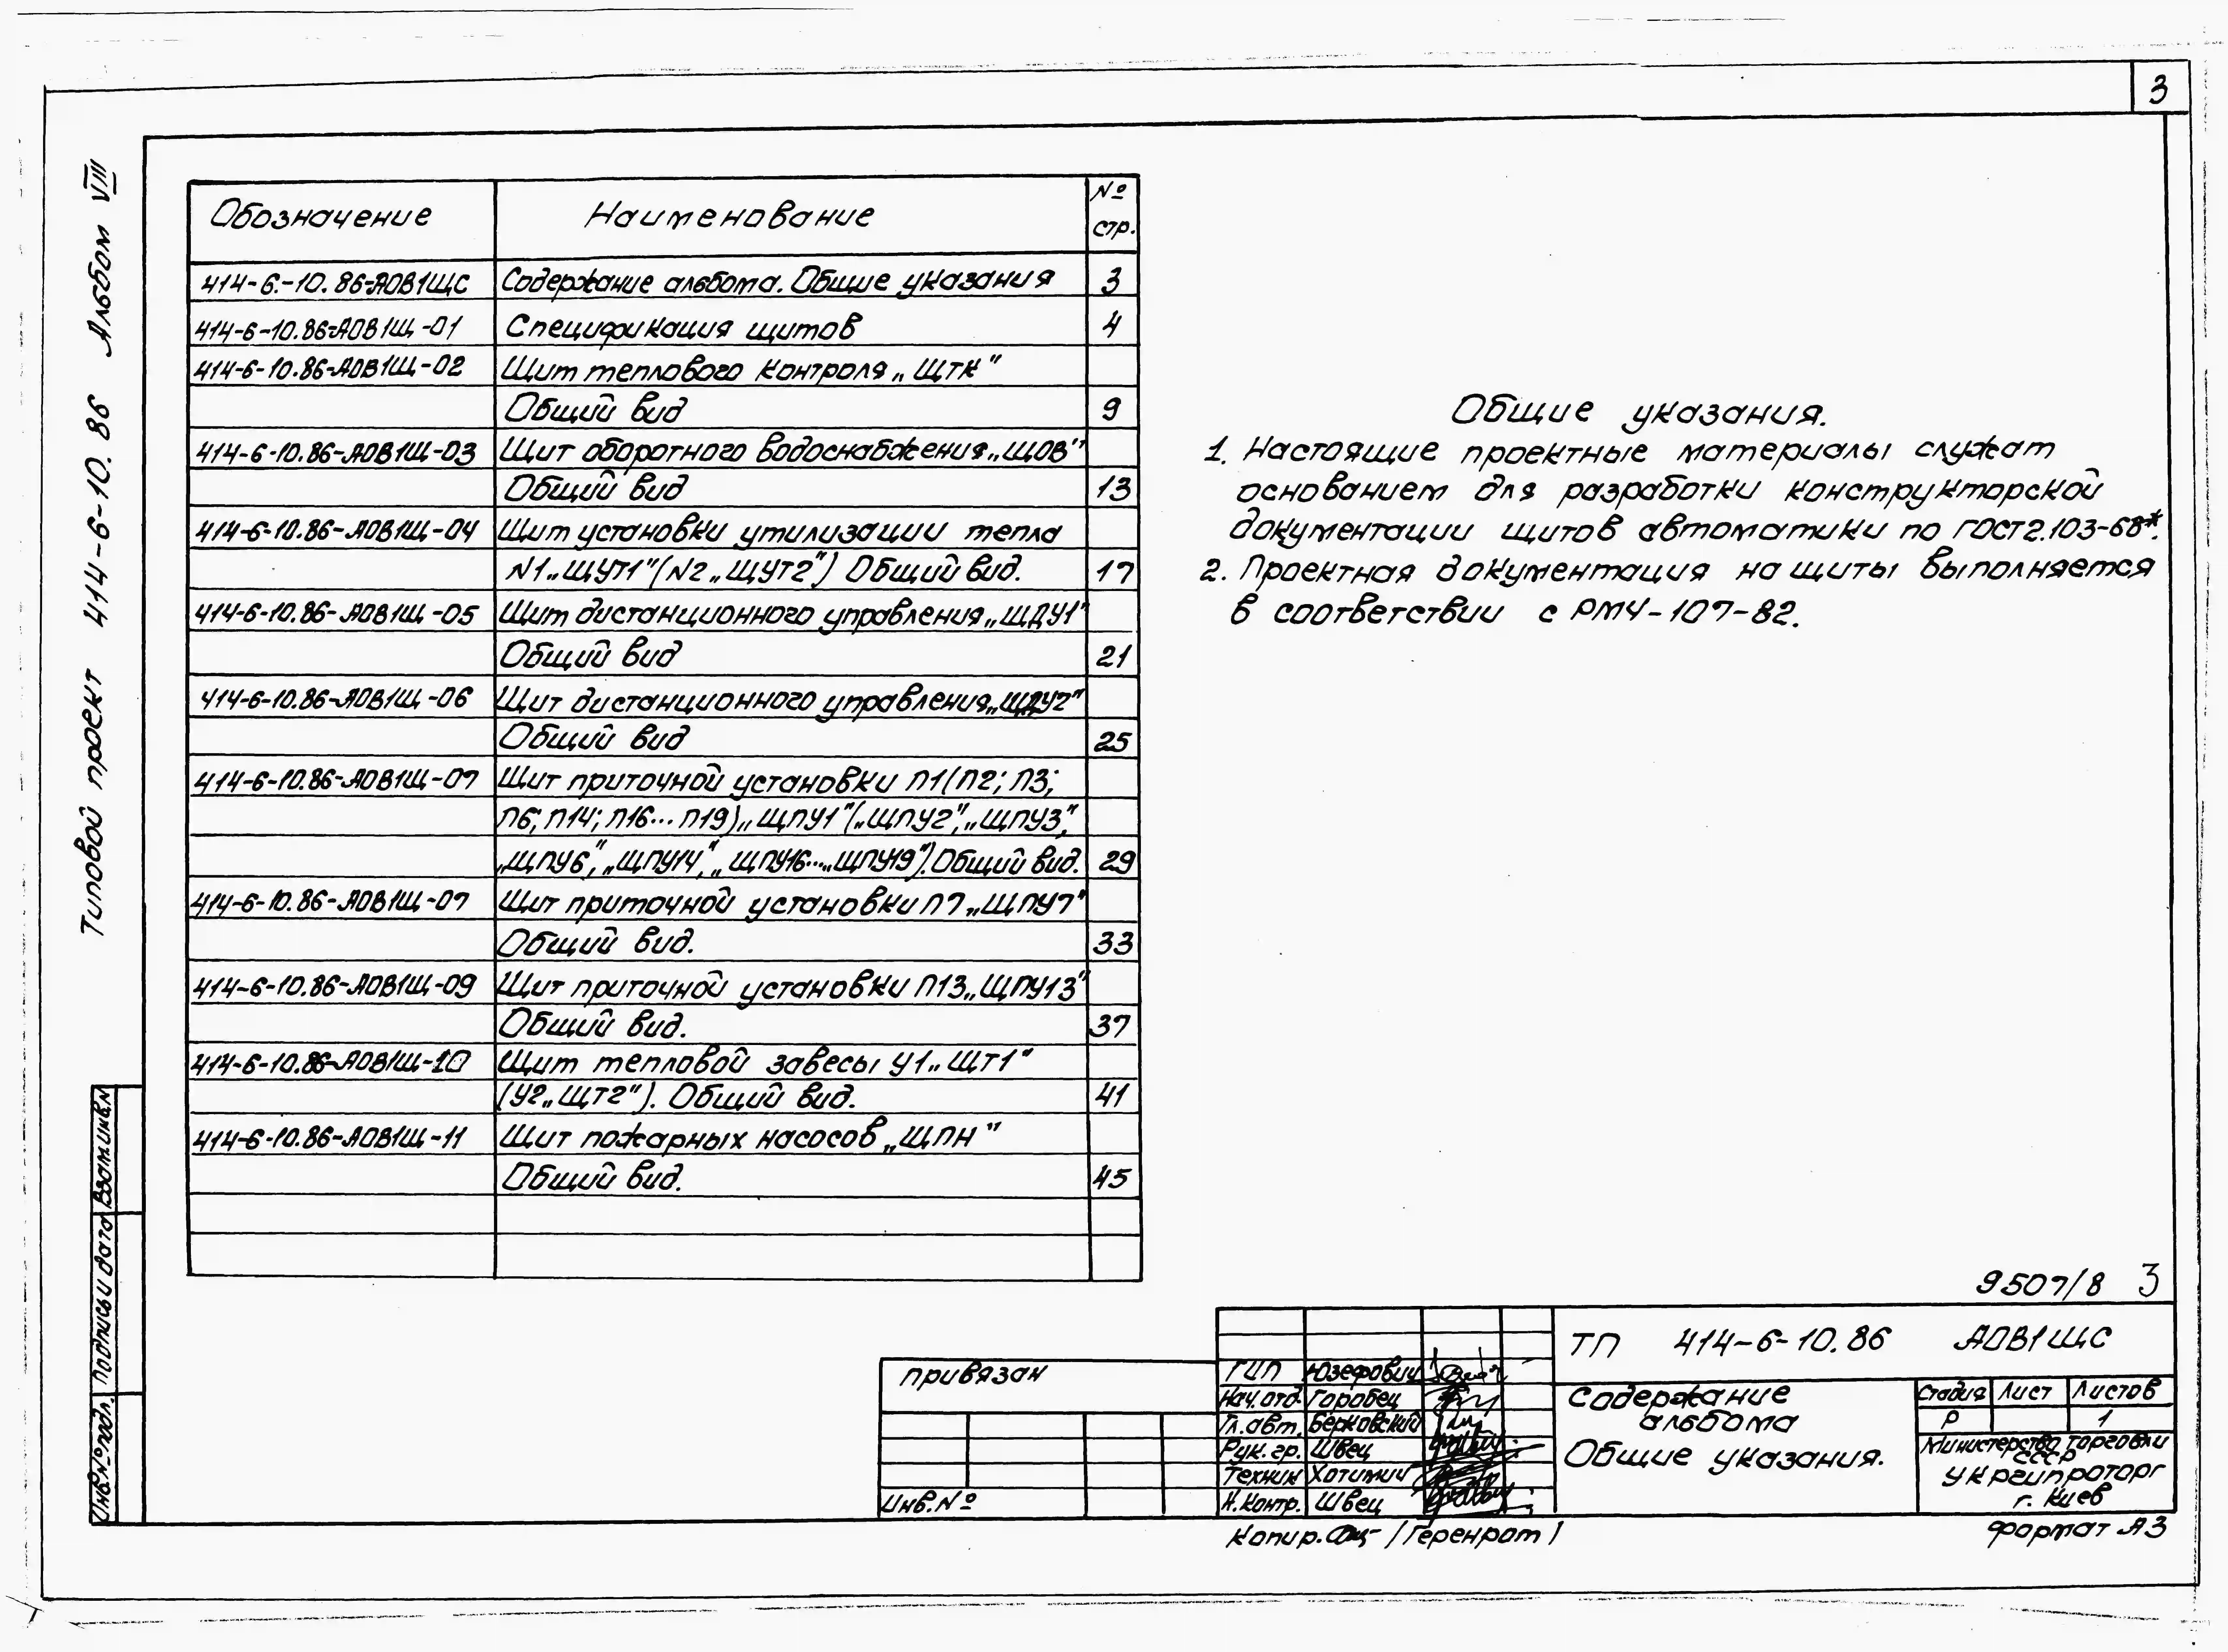 3
Типовой проект 414-6-10.86 Альбом VIII
Обозначение Наименование № стр.
414-6-10.86-АОВ1ЩС Содержание альбома. Общие указания 3
414-6-10.86-АОВ1Щ-01 Спецификация щитов 4
414-6-10.86-АОВ1Щ-02 Щит теплового контроля „ЩТК"
Общий вид 9
414-6-10.86-АОВ1Щ-03 Щит оборотного водоснабжения „ЩОВ"
Общий вид 13
414-6-10.86-АОВ1Щ-04 Щит установки утилизации тепла
N1 „ЩУТ1" (N2 „ЩУТ2") Общий вид. 17
414-6-10.86-АОВ1Щ-05 Щит дистанционного управления „ЩДУ1"
Общий вид 21
414-6-10.86-АОВ1Щ-06 Щит дистанционного управления „ЩДУ2"
Общий вид 25
414-6-10.86-АОВ1Щ-07 Щит приточной установки П1 (П2; П3;
П6; П14; П16... П19) „ЩПУ1" („ЩПУ2", „ЩПУ3",
„ЩПУ6", „ЩПУ14", „ЩПУ16...„ЩПУ19"). Общий вид. 29
414-6-10.86-АОВ1Щ-07 Щит приточной установки П7 „ЩПУ7"
Общий вид. 33
414-6-10.86-АОВ1Щ-09 Щит приточной установки П13 „ЩПУ13"
Общий вид. 37
414-6-10.86-АОВ1Щ-10 Щит тепловой завесы У1 „ЩТ1"
(У2 „ЩТ2"). Общий вид. 41
414-6-10.86-АОВ1Щ-11 Щит пожарных насосов „ЩПН"
Общий вид. 45
Общие указания.
1. Настоящие проектные материалы служат
основанием для разработки конструкторской
документации щитов автоматики по ГОСТ 2.103-68*.
2. Проектная документация на щиты выполняется
в соответствии с РМ4-107-82.
9507/8 3
Инв.№ подл. Подпись и дата Взам.инв.N
привязан
Инв.№
ГИП Юзефович
Нач.отд. Горобец
Гл.авт. Берковский
Рук.гр. Швец
Техник Хотимич
Н.контр. Швец
ТП 414-6-10.86 АОВ1ЩС
Содержание
альбома
Общие указания.
Стадия Лист Листов
Р 1
Министерство торговли
СССР
Укргипроторг
г. Киев
Копир. /Геренрот/
Формат А3